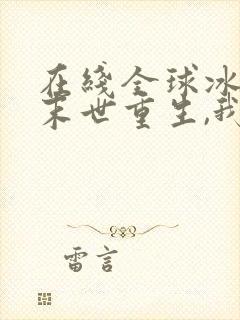 在綫全球冰
末世重生,我
雷言